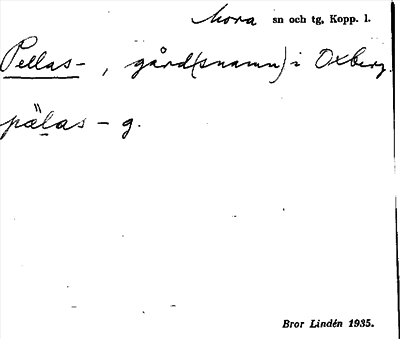 Mora sn och tg, Kopp. l.
Pellas- , gård(snamn) i Oxberg.
pälas - g.
Bror Lindén 1935.